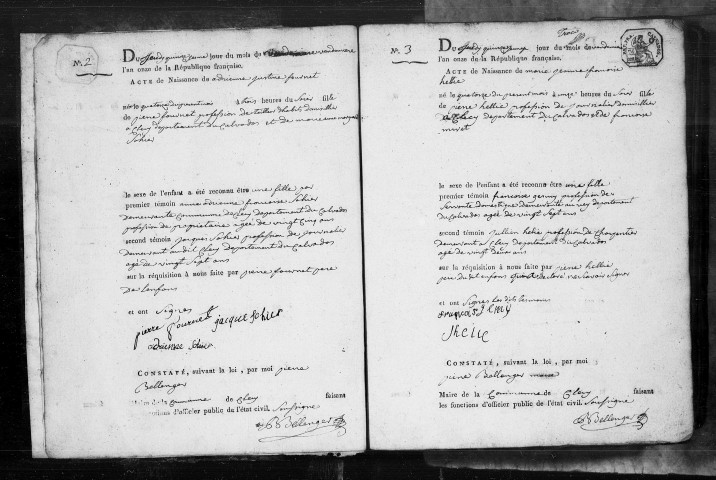 N.º 2
Du jeudy quinzieme jour du mois de vendemiaire
l'an onze de la République française.
Acte de Naissance de adrienne justine fournet
née le quatorze du present mois à trois heures du Soir fille
de pierre fournet profession de tailleur d'habits domicillié
à Clecy departement du Calvados et de marie anne
Sohier
le sexe de l'enfant a été reconnu être une fille par
premier témoin anne adrienne francoise Sohier
demeurante commune de Clecy departement du Calvados
profession de propriétaire agée de vingt cinq ans
second témoin jacques Sohier profession de journalier
demeurant audit Clecy departement du Calvados
agé de vingt Sept ans
sur la réquisition à nous faite par pierre fournet pere
de l'enfant
et ont Signés
pierre fournet jacques Sohier
Constaté, suivant la loi, par moi pierre
Bellenger
Maire de la commune de Clecy faisant
fonctions d'officier public de l'état civil. Soussigné
P Bellenger
N.º 3
Du jeudy quinzieme jour du mois de
l'an onze de la République française.
Acte de Naissance de marie jeanne francoise
hellie
née le quatorze du present mois à onze heures du Soir fille
de pierre hellie profession de journalier domicillier
à Clecy departement du Calvados et de francoise
le sexe de l'enfant a été reconnu être une fille
premier témoin francoise profession de
Servante domestique demeurante departement
du Calvados agée de vingt Sept ans
second témoin hellie profession de Charpentier
demeurant à Clecy departement du Calvados
agé de vingt deux ans
sur la réquisition à nous faite par pierre hellie
pere du dit enfant declaré ne Savoir Signer
et ont Signés Les dits temoins
Constaté, suivant la loi, par moi
pierre Bellenger
Maire de la Commune de Clecy faisant
les fonctions d'officier public de l'état civil. Soussigné
P Bellenger